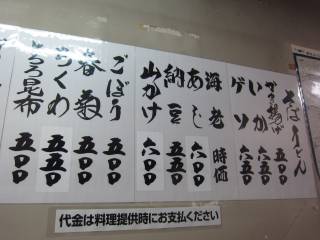 そば うどん
かき揚げ 五五〇
いか 六五〇
ゲソ 六五〇
海老 時価
あじ 六〇〇
納豆 五五〇
山かけ 六〇〇
ごぼう 五五〇
春菊 五五〇
ちくわ 五五〇
とろろ昆布 五〇〇
代金は料理提供時にお支払ください